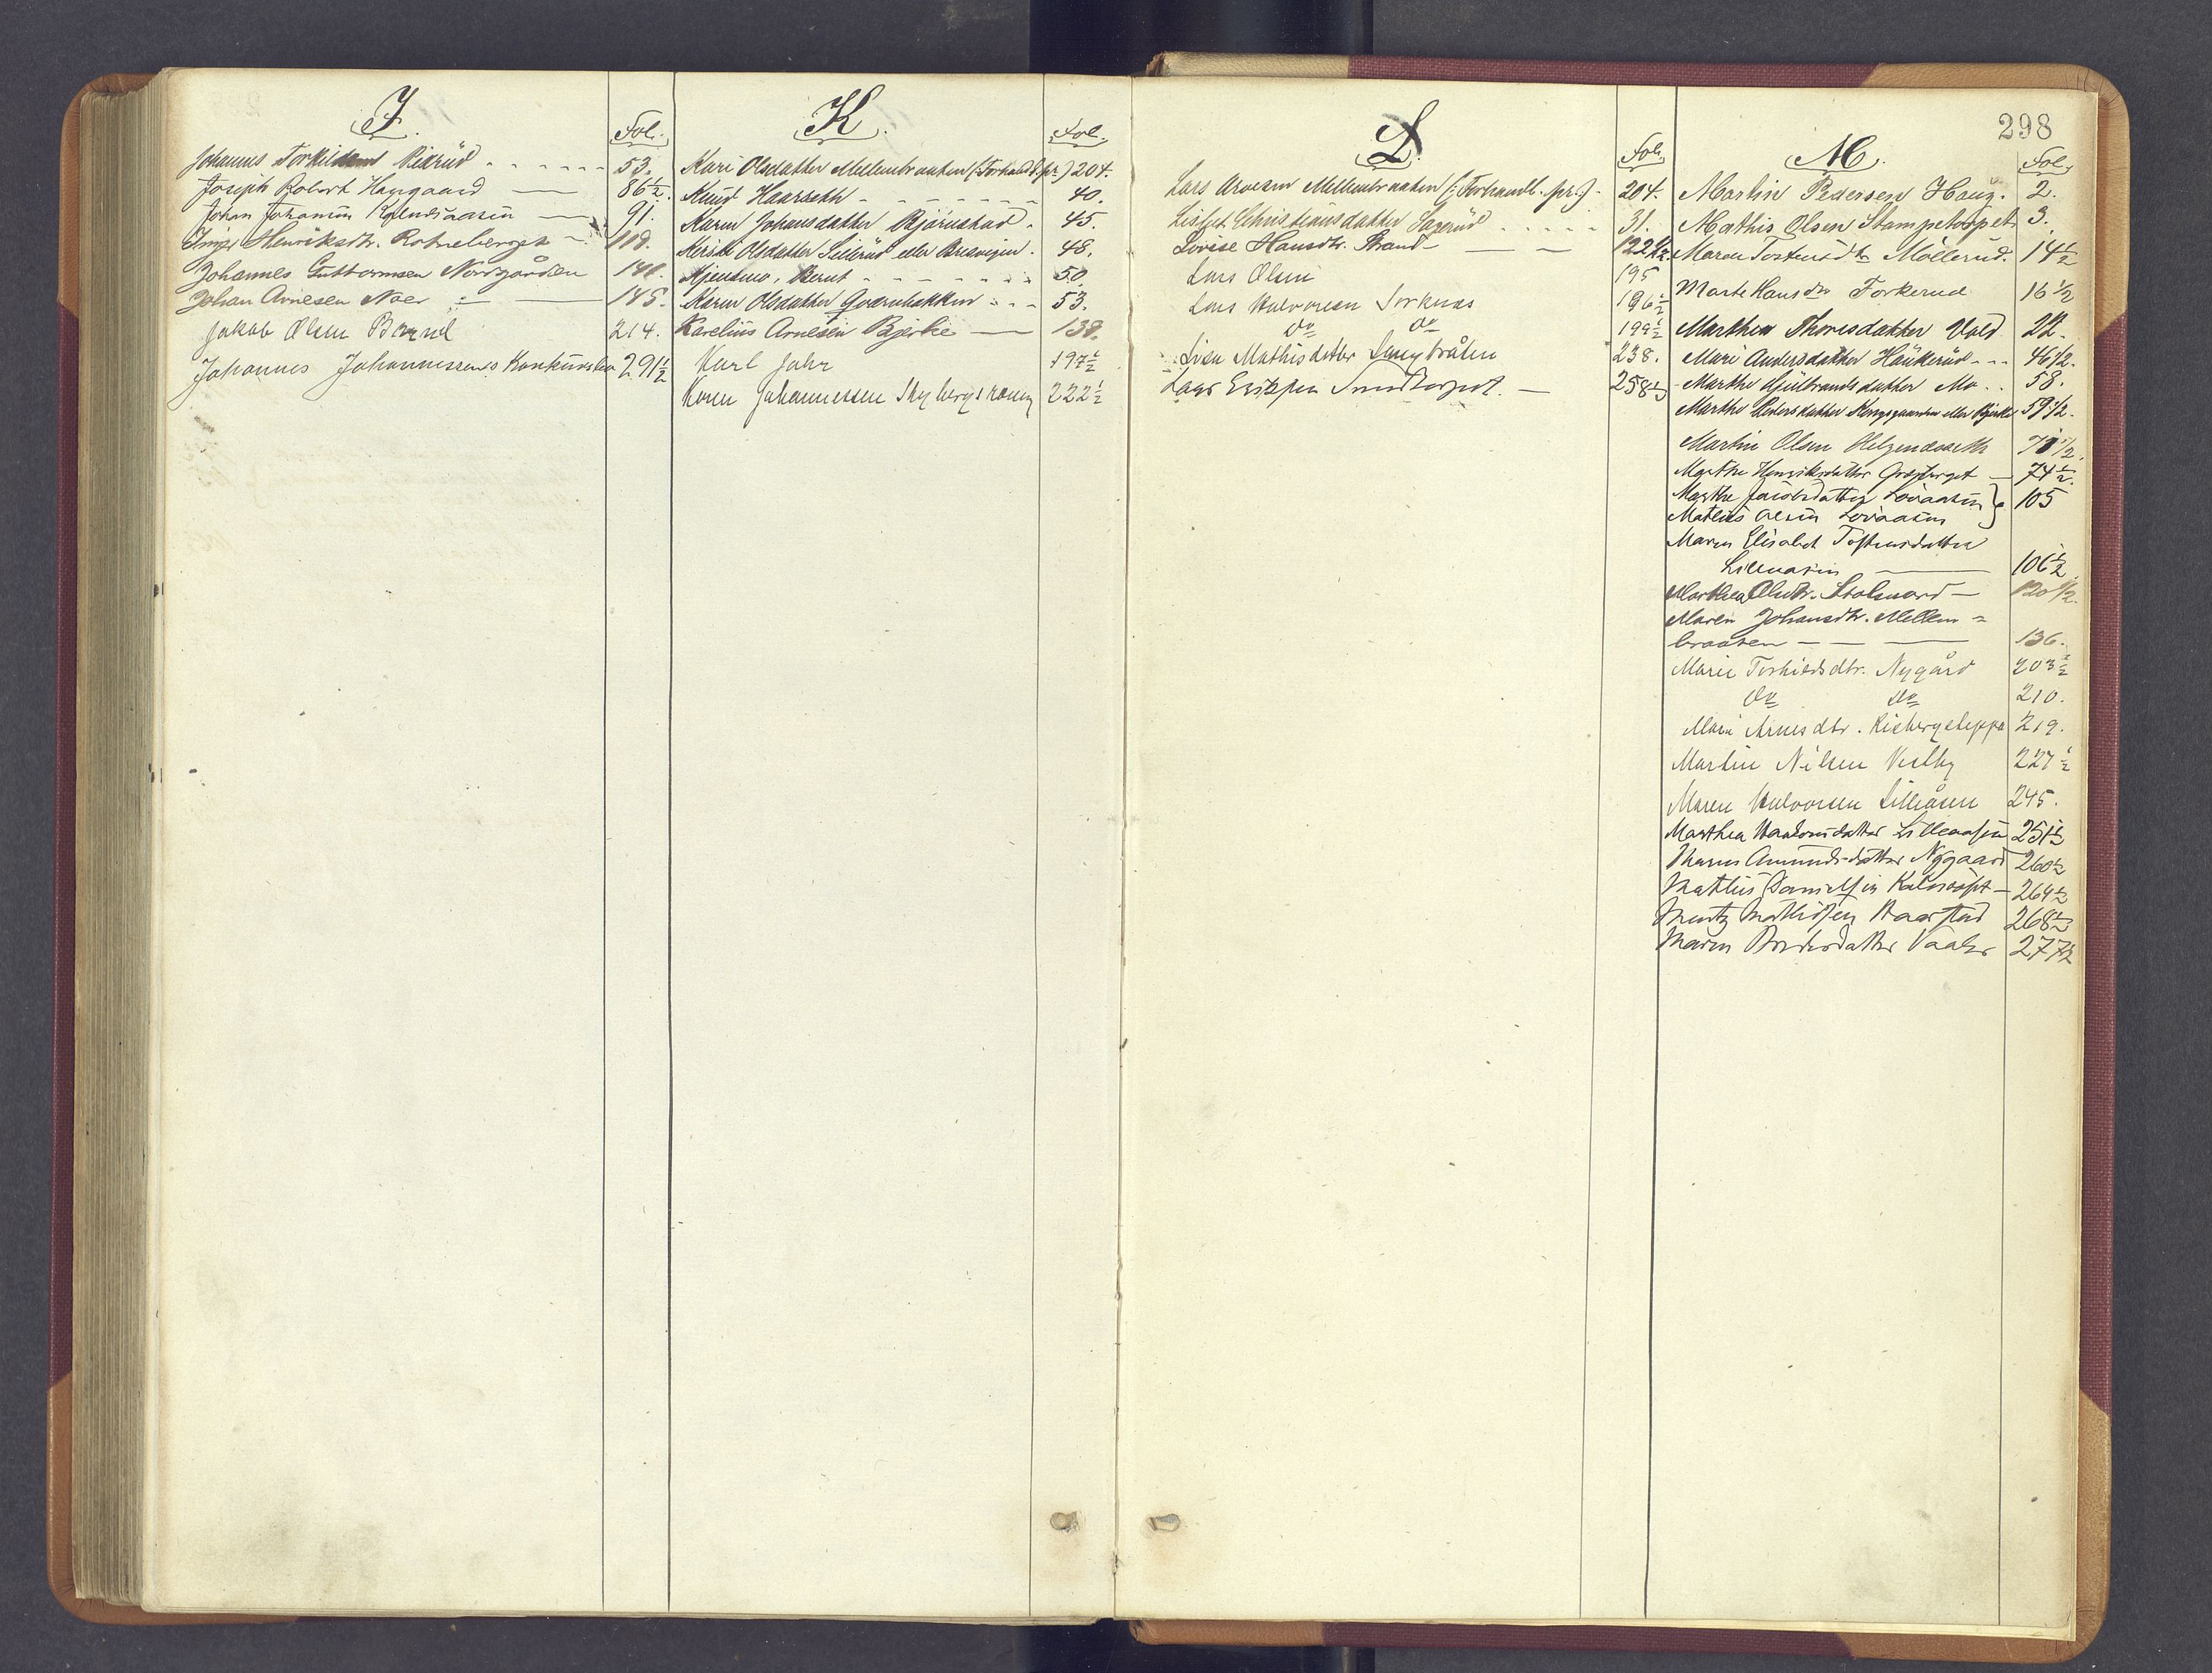 J. Fol.
Johannes Torkildsens 53.
Joseph Robert Haugaard 86½.
Johan Johansen 91.
Henriksdtr. Rotneberget 118.
Johannes Guttormsen Nordgården
Johan Arnesen Noer 185.
Jakob Olsen 214.
Johannes Johannessens 291½
K. Fol.
Kari Olsdatter Mellembraaten (Forhandl. pr.) 204.
Knud Haarseth 40.
Karen Johansdatter Bjørnstad 45.
Olsdatter eller 48.
50.
Karen Olsdatter Qværnbakken 53.
Karelius Arnesen Bjerke 138.
Karl Jahr 197½
Karen Johannessen 222½
L. Fol.
Lars Arnesen Mellembraaten (Forhandl. pr.) 204.
Lisbet Christiansdatter Sagerud 31.
Lovise Hansdtr. Strand 122½.
Lars Olsen 195
Lars Halvorsen Sorknes 196½
Do Do 199½
Lisa Mathisdatter Langbråten 238.
Lars 258½
298
M. Fol.
Martin Pedersen Haug. 2.
Mathis Olsen Stampetorpet 3.
Maren Tostensdtr Möllerud. 14½
Marte Hansdtr Torkerud 16½
Marthea Thoresdatter Vold 22.
Mari Andersdatter Haukerud 46½.
Marthe Gulbrandsdatter Mo 58.
Marthe Pedersdatter eller Bjerke 59½.
Martin Olsen Helgendseth 71½.
Marthe Henriksdatter 74½.
Marthe Jacobsdatter Lövaasen } 105
Mathis Olsen Lövaasen
Maren Elisabet Tostensdatter
Lilleaasen 106½.
Marthea Olsdtr. 120½.
Maren Johansdtr. Mellem=
braaten 136.
Marie Torkildsdtr. Nygård 203½
Do Do 210.
Mari Arnesdtr. 219.
Martin Nilsen Vestby 227½
Maren Halvorsen Lilleåsen 245.
Marthea Haakonsdatter Lilleaasen 251½
Maren Amundsdatter Nygaard 260½
Mathis Danielsen 264½
Mathisen Haarstad 268½
Maren Vaaler 277½